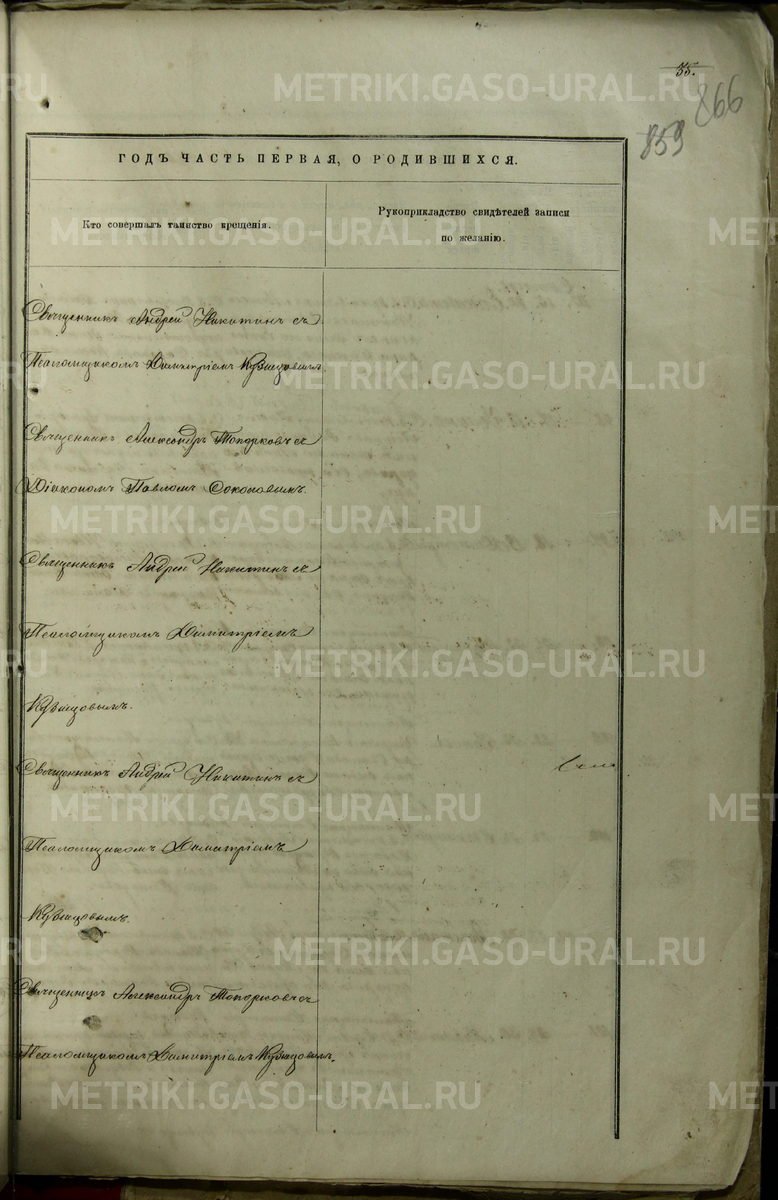 35.
866
859
ГОДЪ ЧАСТЬ ПЕРВАЯ, О РОДИВШИХСЯ.
Кто совершалъ таинство крещенія.
Рукоприкладство свидѣтелей записи
по желанію.
Священникъ Андрей Никитинъ съ
Псаломщикомъ Димитріемъ Кузнецовымъ
Священникъ Александръ Топорковъ съ
Діакономъ Павломъ Соколовымъ.
Священникъ Андрей Никитинъ съ
Псаломщикомъ Димитріемъ
Кузнецовымъ.
Священникъ Андрей Никитинъ съ
Псаломщикомъ Димитріемъ
Кузнецовымъ.
Священникъ Александръ Топорковъ съ
Псаломщикомъ Димитріемъ Кузнецовымъ.
METRIKI.GASO-URAL.RU